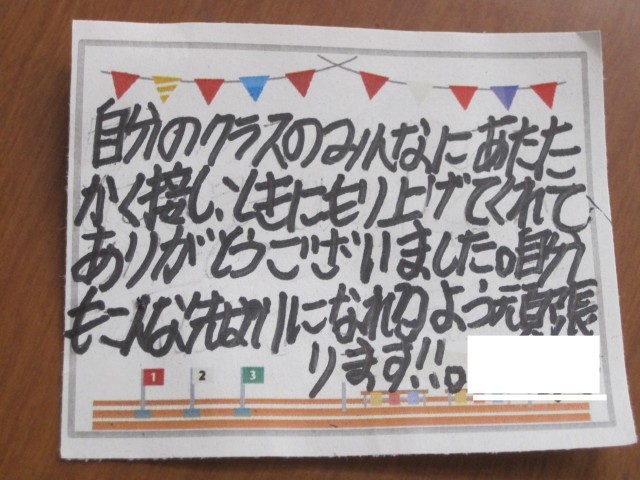 自分のクラスのみんなにあたた
かく接し、ときにもり上げてくれて
ありがとうございました。自分
もこんな先ぱいになれるよう頑張
ります!!。
1 2 3